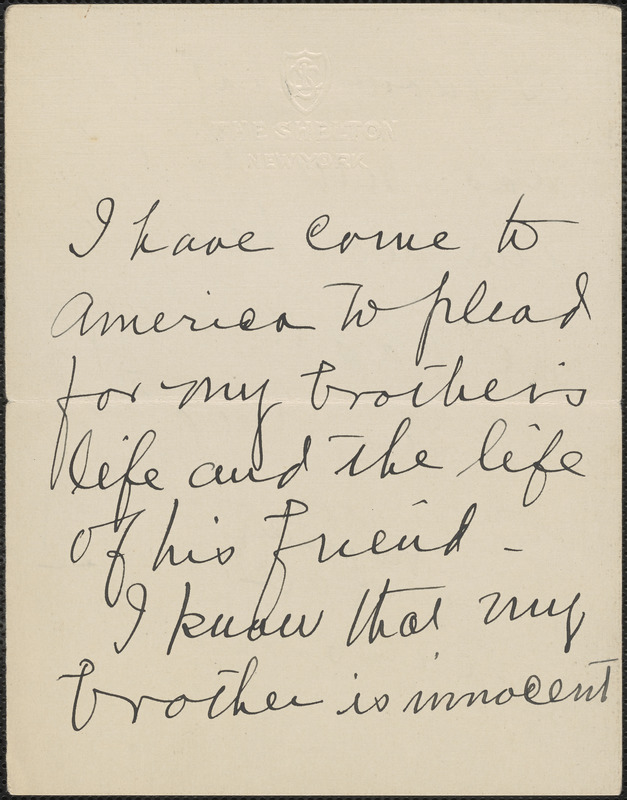 THE SHELTON
NEW YORK
I have come to
America to plead
for my brother's
life and the life
of his friend -
I know that my
brother is innocent